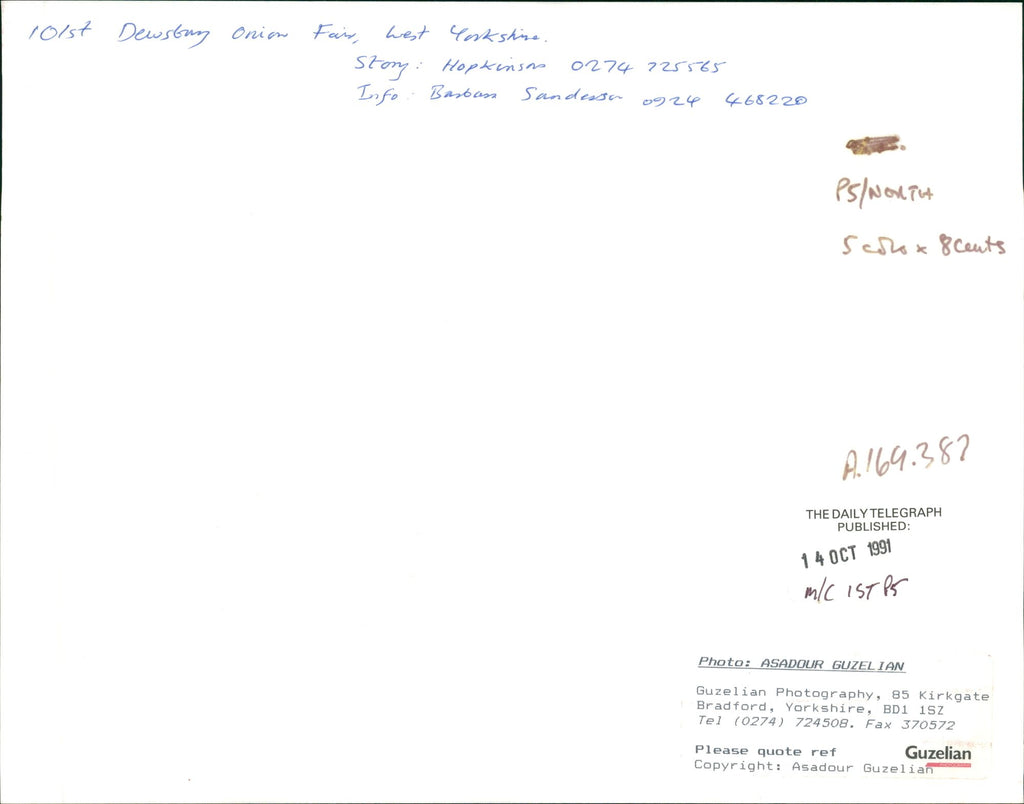 101st Dewsbury Onion Fair, West Yorkshire.
Story: Hopkinson 0274 725565
Info: Barbara Sanderson 0924 468220
P5/NORTH
5 cols x 8 cents
A.169.387
THE DAILY TELEGRAPH
PUBLISHED:
14 OCT 1991
M/C 1ST P5
Photo: ASADOUR GUZELIAN
Guzelian Photography, 85 Kirkgate
Bradford, Yorkshire, BD1 1SZ
Tel (0274) 724508. Fax 370572
Please quote ref
Guzelian
Copyright: Asadour Guzelian